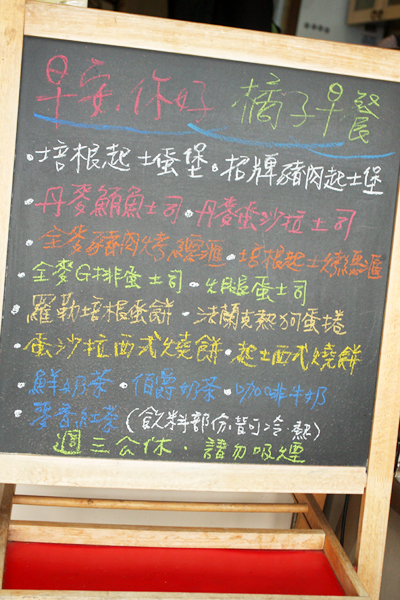 早安.你好 橘子早發
·培根起士蛋堡·招牌豬肉起士堡
·丹麥鮪魚土司·丹麥蛋沙拉土司
·全麥豬肉烤總匯·培根起士總匯
·全麥G排蛋土司·火腿蛋土司
·羅勒培根蛋餅·法蘭克熱狗蛋捲
·蛋沙拉西式燒餅·起士西式燒餅
·鮮奶茶·伯爵奶茶·咖啡牛奶
·麥香紅茶(飲料部份皆可冷.熱)
週三公休·請勿吸煙